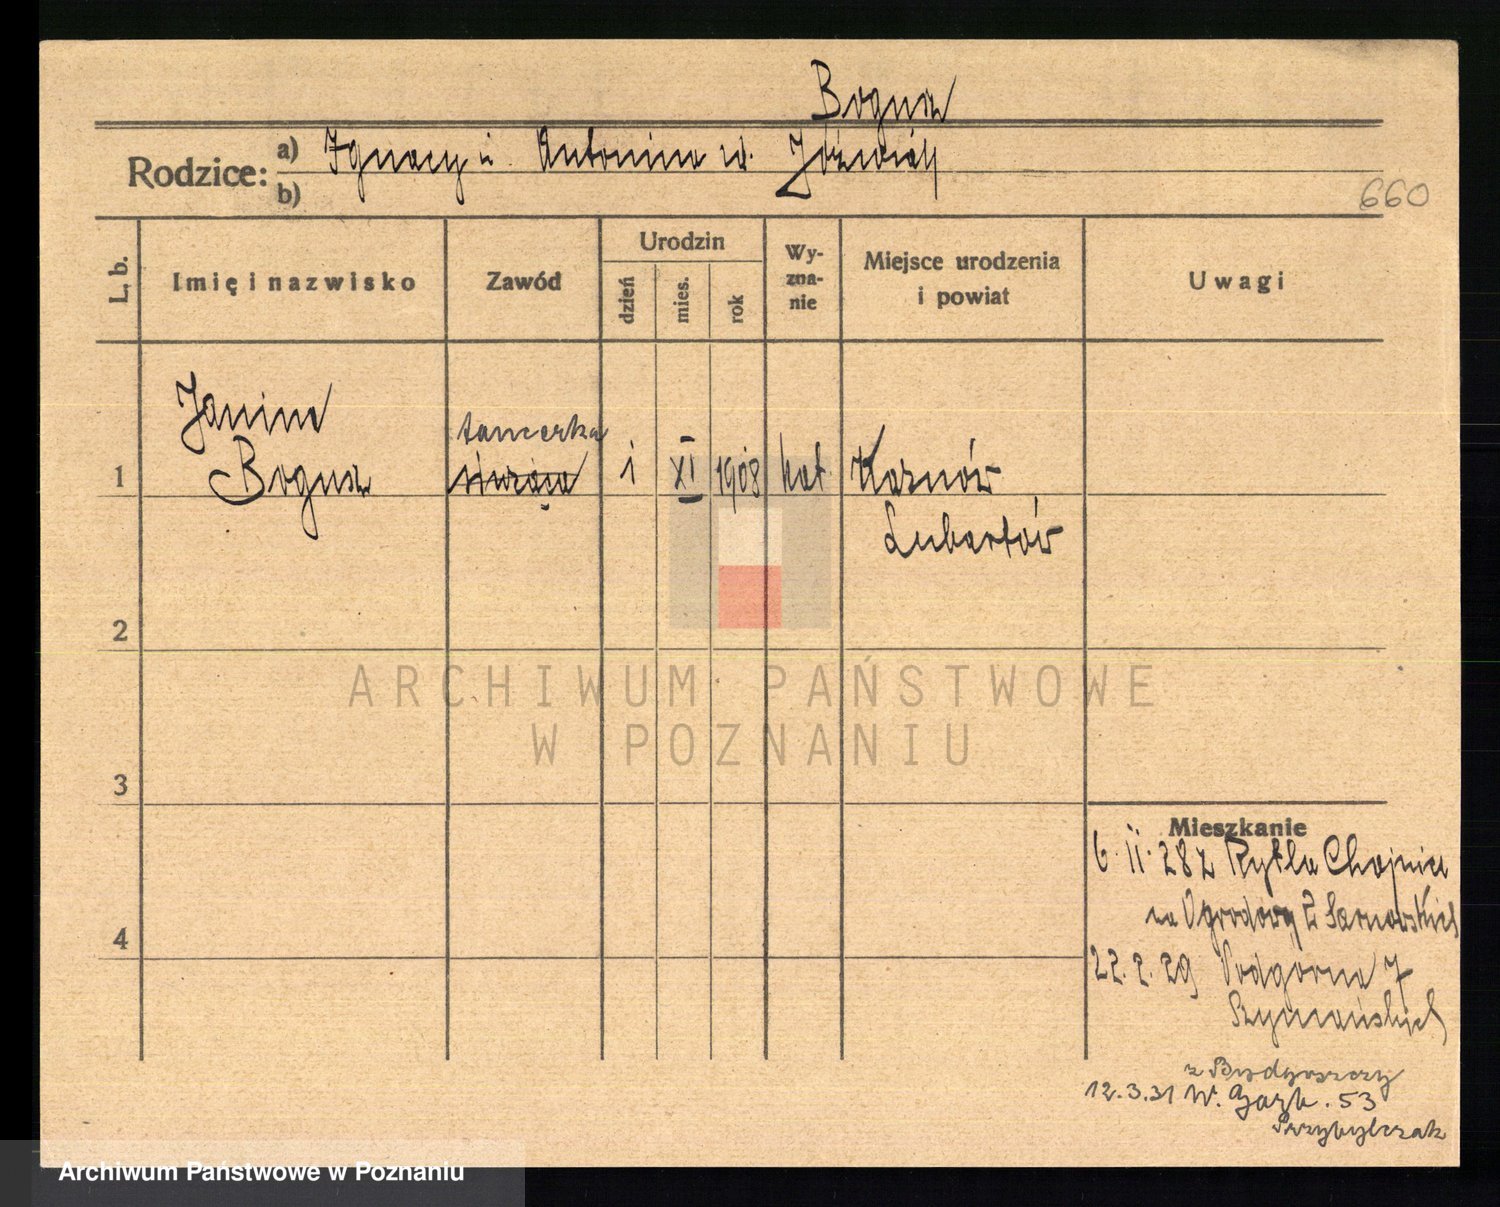 Bogusz
Rodzice: a) Ignacy i Antonina ur. Jóźwiak
b)
660
L. b. Imię i nazwisko Zawód Urodzin dzień mies. rok Wy-zna-nie Miejsce urodzenia i powiat Uwagi
Janina tancerka
1 Bogusz służąca 1 XI 1908 kat Kaznów
Lubartów
2
ARCHIWUM PAŃSTWOWE
W POZNANIU
3
Mieszkanie
6. II. 28 z Rytla Chojnice
na Ogrodową 2 Sarnowskich
4
22. 2. 29 Podgórna 7
Szymański
z Bydgoszczy
12.3.31 W. Garb. 53
Przybylczak
Archiwum Państwowe w Poznaniu